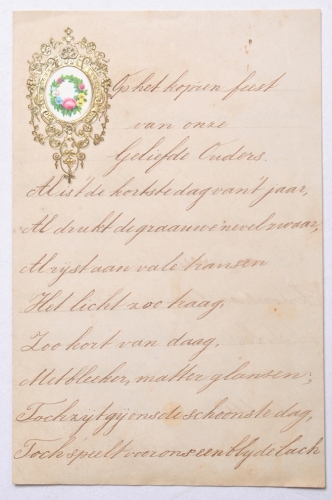 Op het kop'ren feest
van onze
Geliefde Ouders.
Al is't de kortste dag van't jaar,
Al drukt de graauwe nevel zwaar,
Al rijst aan vale transen
Het licht zoo traag,
Zoo kort van daag,
Met bleeker, matter glansen;
Toch zijt gij ons de schoonste dag,
Toch speelt voor ons een blyde lach